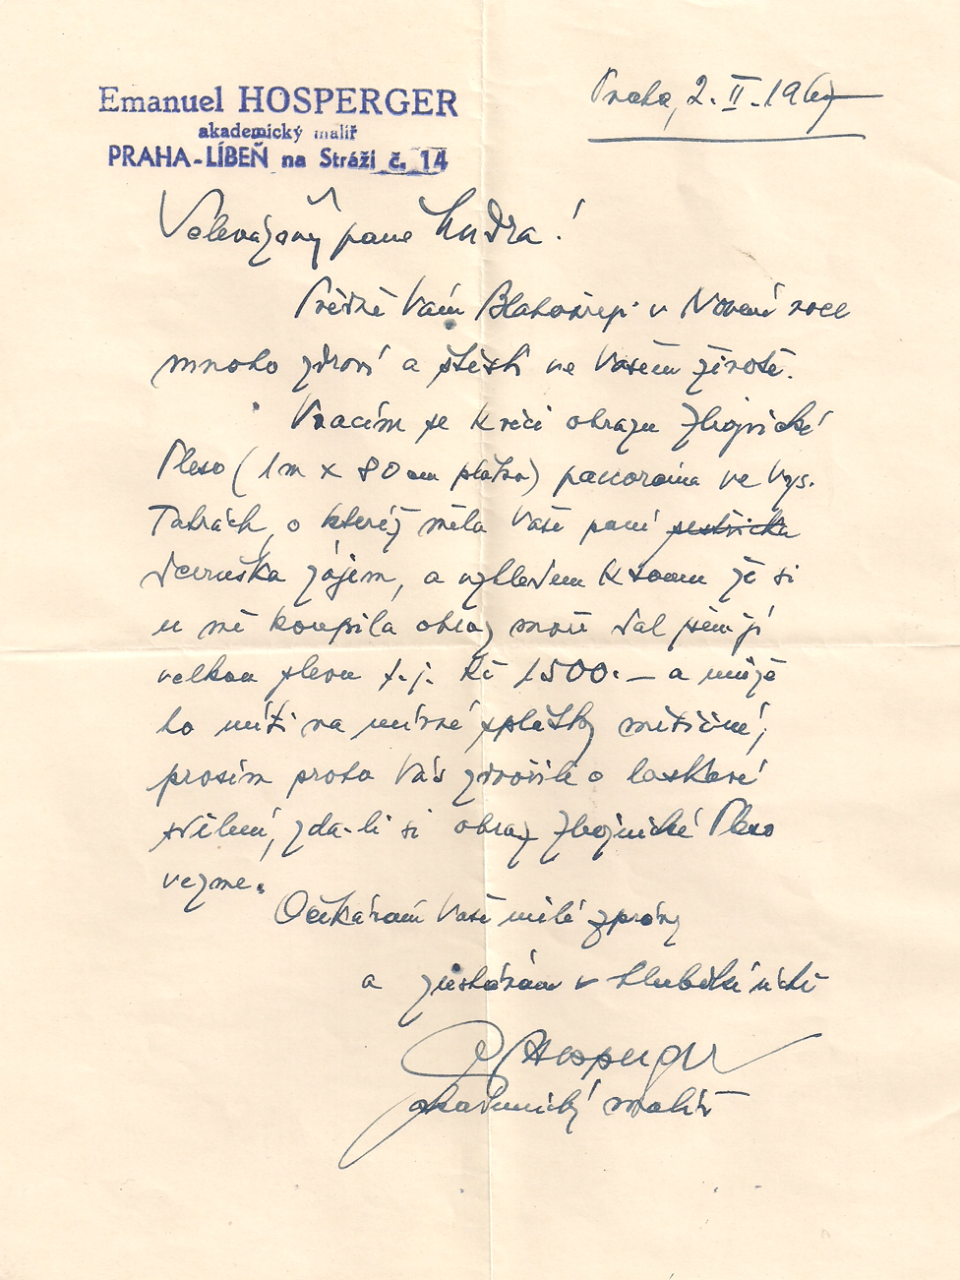 Emanuel HOSPERGER
akademický malíř
PRAHA-LÍBEŇ na Stráži č. 14
Praha, 2. II. 196
Velevážený pane
Předně Vám Blahopřeji v Novém roce
mnoho zdraví a štěstí ve Vašem životě.
Vracím se k věci obrazu Zbojnické
Pleso (1m x 80 cm plátno) panorama ve Vys.
Tatrách, o který měla Vaše paní sestřička
Veruška zájem, a vzhledem k tomu že si
u mě koupila obraz moře dal jsem jí
velkou slevu t.j. Kč 1500.— a může
ho míti na mírné splátky měsíčně,
prosím proto Vás zdvořile o laskavé
sdělení, zda-li si obraz Zbojnické Pleso
vezme.
Očekávám Vaše milé zprávy
a zůstávám v hluboké úctě
Hosperger
akademický malíř